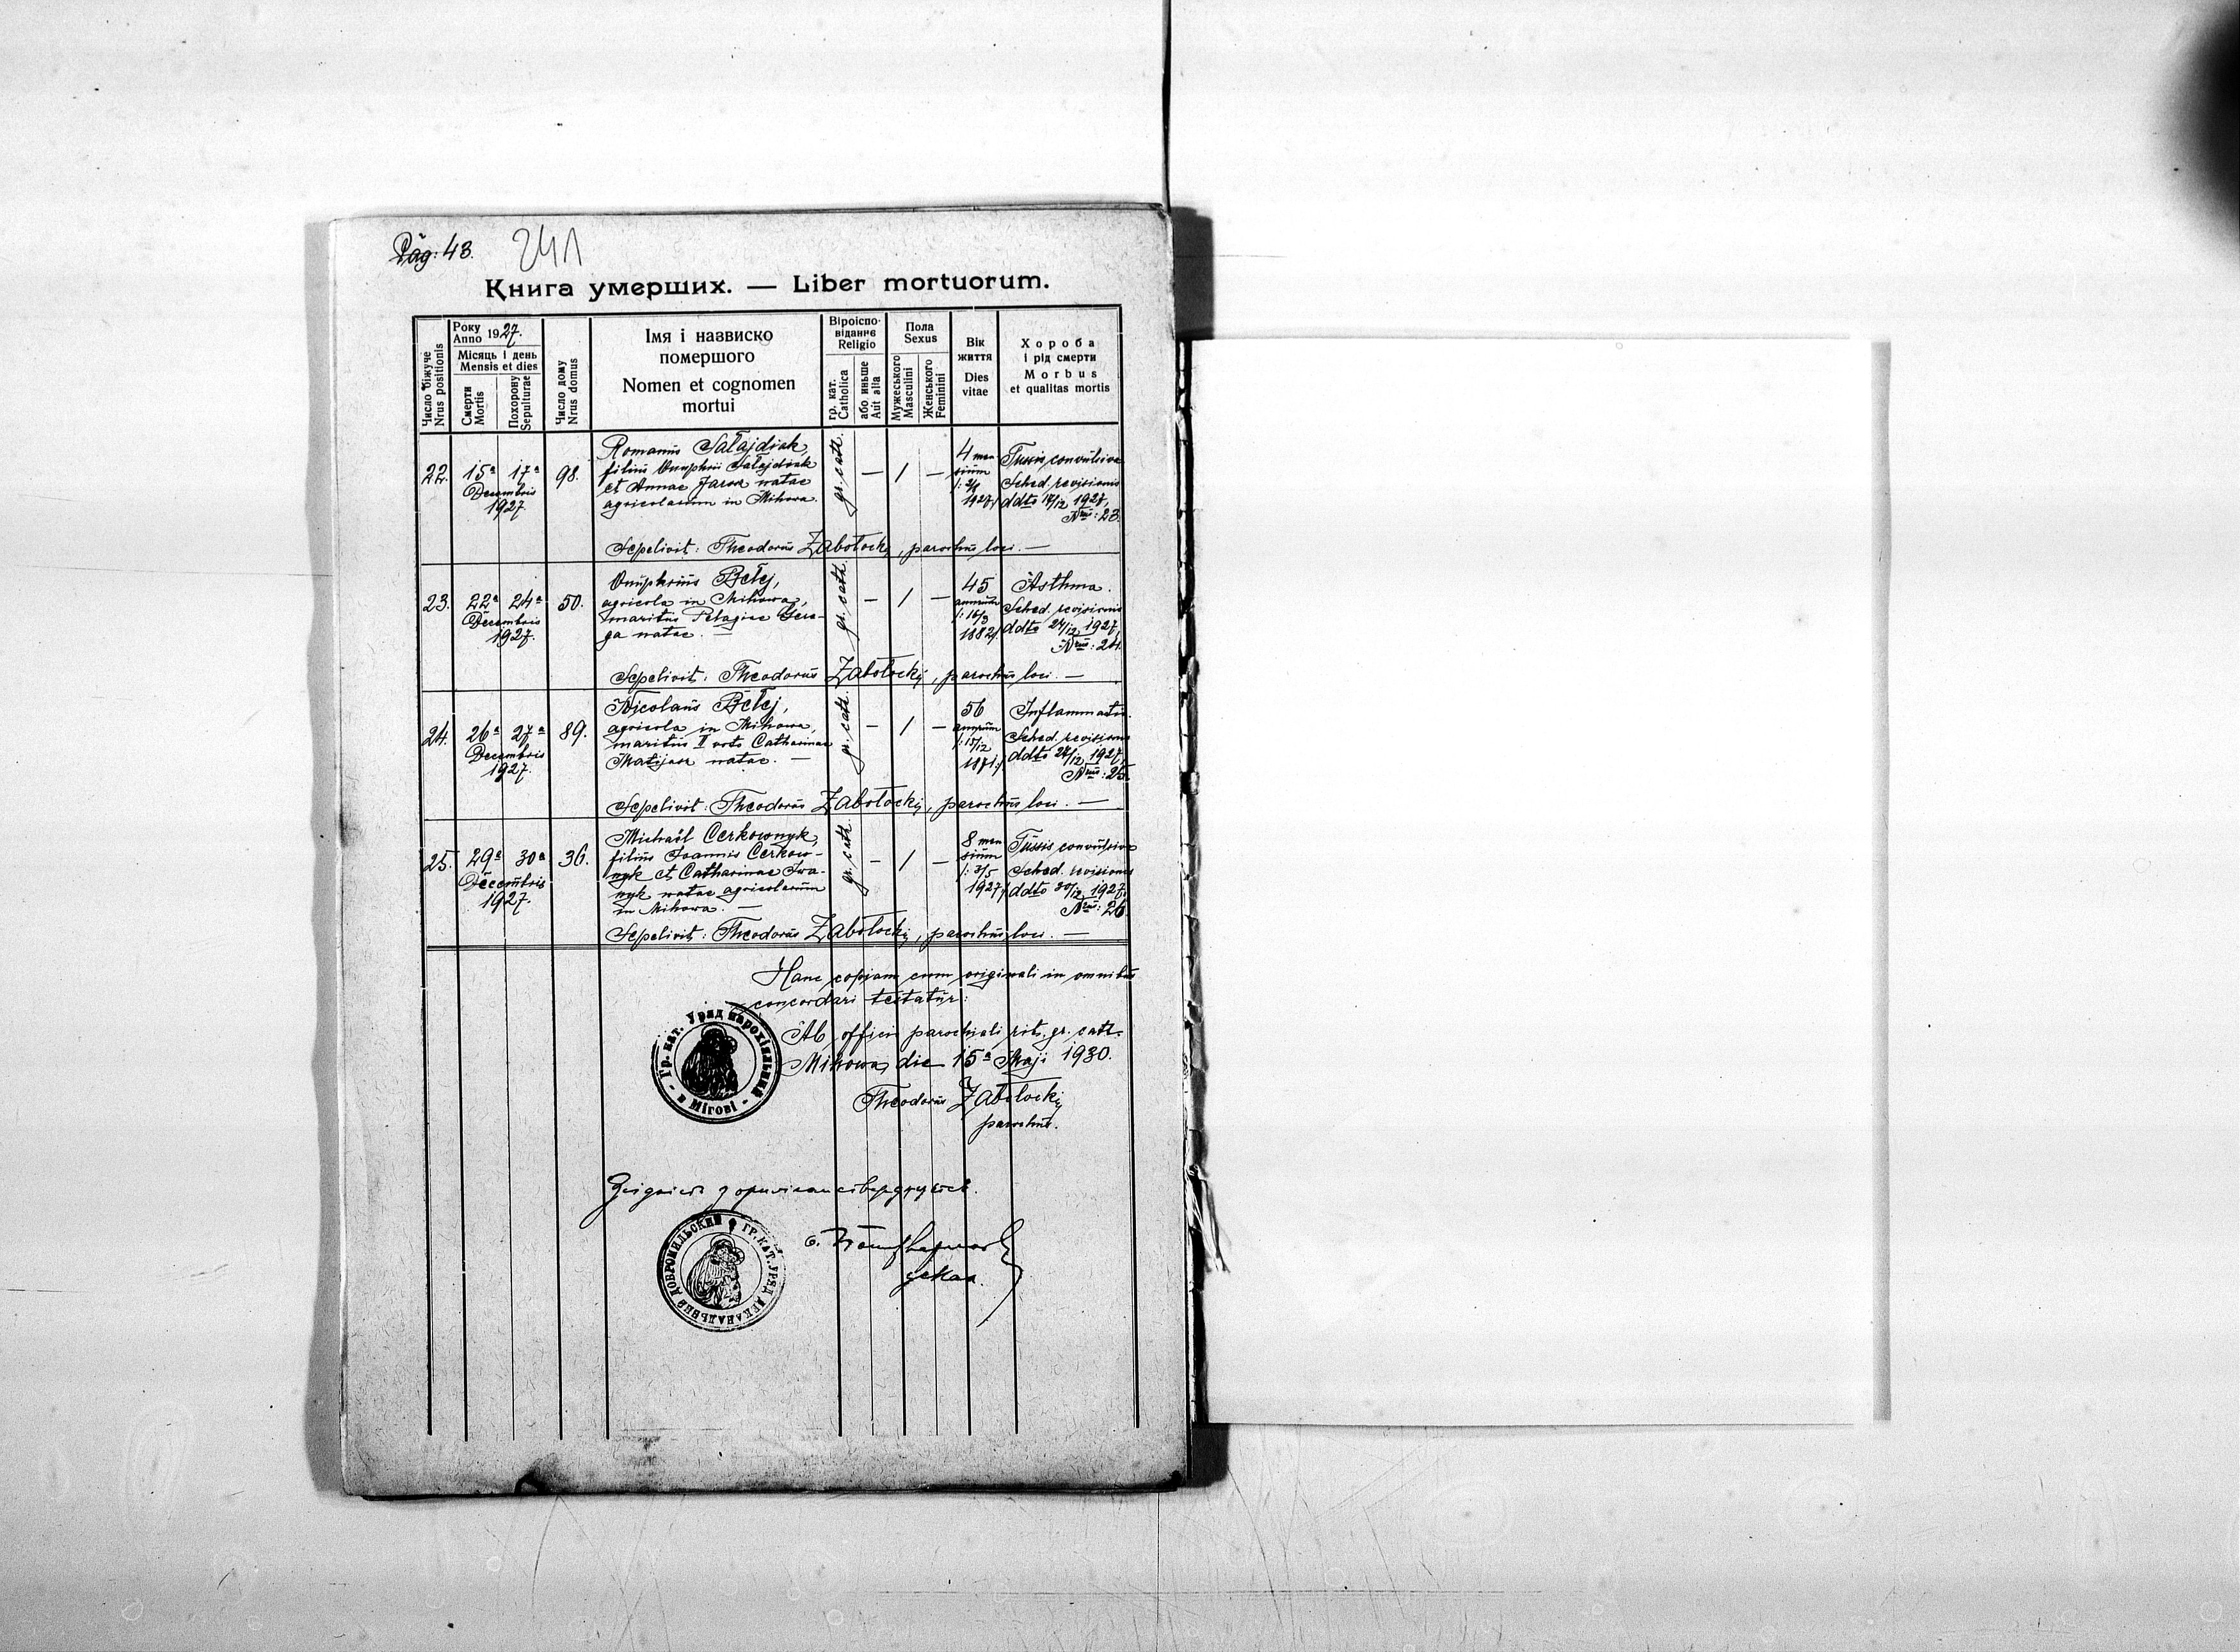 Pag: 43.
241
Книга умерших. — Liber mortuorum.
Число біжуче
Nrus positionis
Року
Anno 1927.
Місяць і день
Mensis et dies
Смерти
Mortis
Похорону
Sepulturae
Число дому
Nrus domus
Імя і назвиско
помершого
Nomen et cognomen
mortui
Віроіспо-
відание
Religio
гр. кат.
Catholica
або иньше
Aut alia
Пола
Sexus
Мужеського
Masculini
Женського
Feminini
Вік
життя
Dies
vitae
Хороба
і рід смерти
Morbus
et qualitas mortis
22. 15ª 17ª
Decembris
1927
98.
Romanus Sałajdiak,
filius Onuphrii Sałajdiak
et Annae Jaros natae
agricolarum in Mihowa.
gr. cath. — / —
4 men
sium
1927
Tussis convulsiva
Sched. revisionis
ddto 17/12 1927,
Nrus: 23.
Sepelivit: Theodorus Zabołockij, parochus loci. —
23. 22ª 24ª
Decembris
1927.
50.
Onuphrius Bełej,
agricola in Mihowa,
maritus Pelagiae
ga natae. —
gr. cath. — / —
45
annorum
/: 16/9
1882/.
Asthma.
Sched. revisionis
ddto 24/12 1927,
Nrus: 24.
Sepelivit: Theodorus Zabołockij, parochus loci. —
24. 26ª 27ª
Decembris
1927.
89.
Nicolaus Bełej,
agricola in Mihowa,
maritus II voto Catharinae
natae. —
gr. cath. — / —
56
annorum
/: 15/12
1871/.
Inflammatio.
Sched. revisionis
ddto 27/12 1927,
Nrus: 25.
Sepelivit: Theodorus Zabołockij, parochus loci. —
25. 29ª 30ª
Decembris
1927.
36.
Michaël Cerkownyk,
filius Joannis Cerkow-
nyk et Catharinae Iwa-
nyk natae agricolarum
in Mihowa. —
gr. cath. — / —
8 men
sium
/: 3/5
1927/
Tussis convulsiva
Sched. revisionis
ddto 30/12 1927,
Nrus: 26.
Sepelivit: Theodorus Zabołockij, parochus loci. —
Hanc copiam cum originali in omnibus
concordari testatur:
Ab officio parochiali rit. gr. cath.
Mihowa, die 15ª Maji 1930.
Theodorus Zabołockij
parochus.
Гр. кат. Уряд парохіяльний
в Мігові
декан.
ГР. КАТ. УРЯД ДЕКАНАЛЬНИЙ ДОБРОМИЛЬСКИЙ